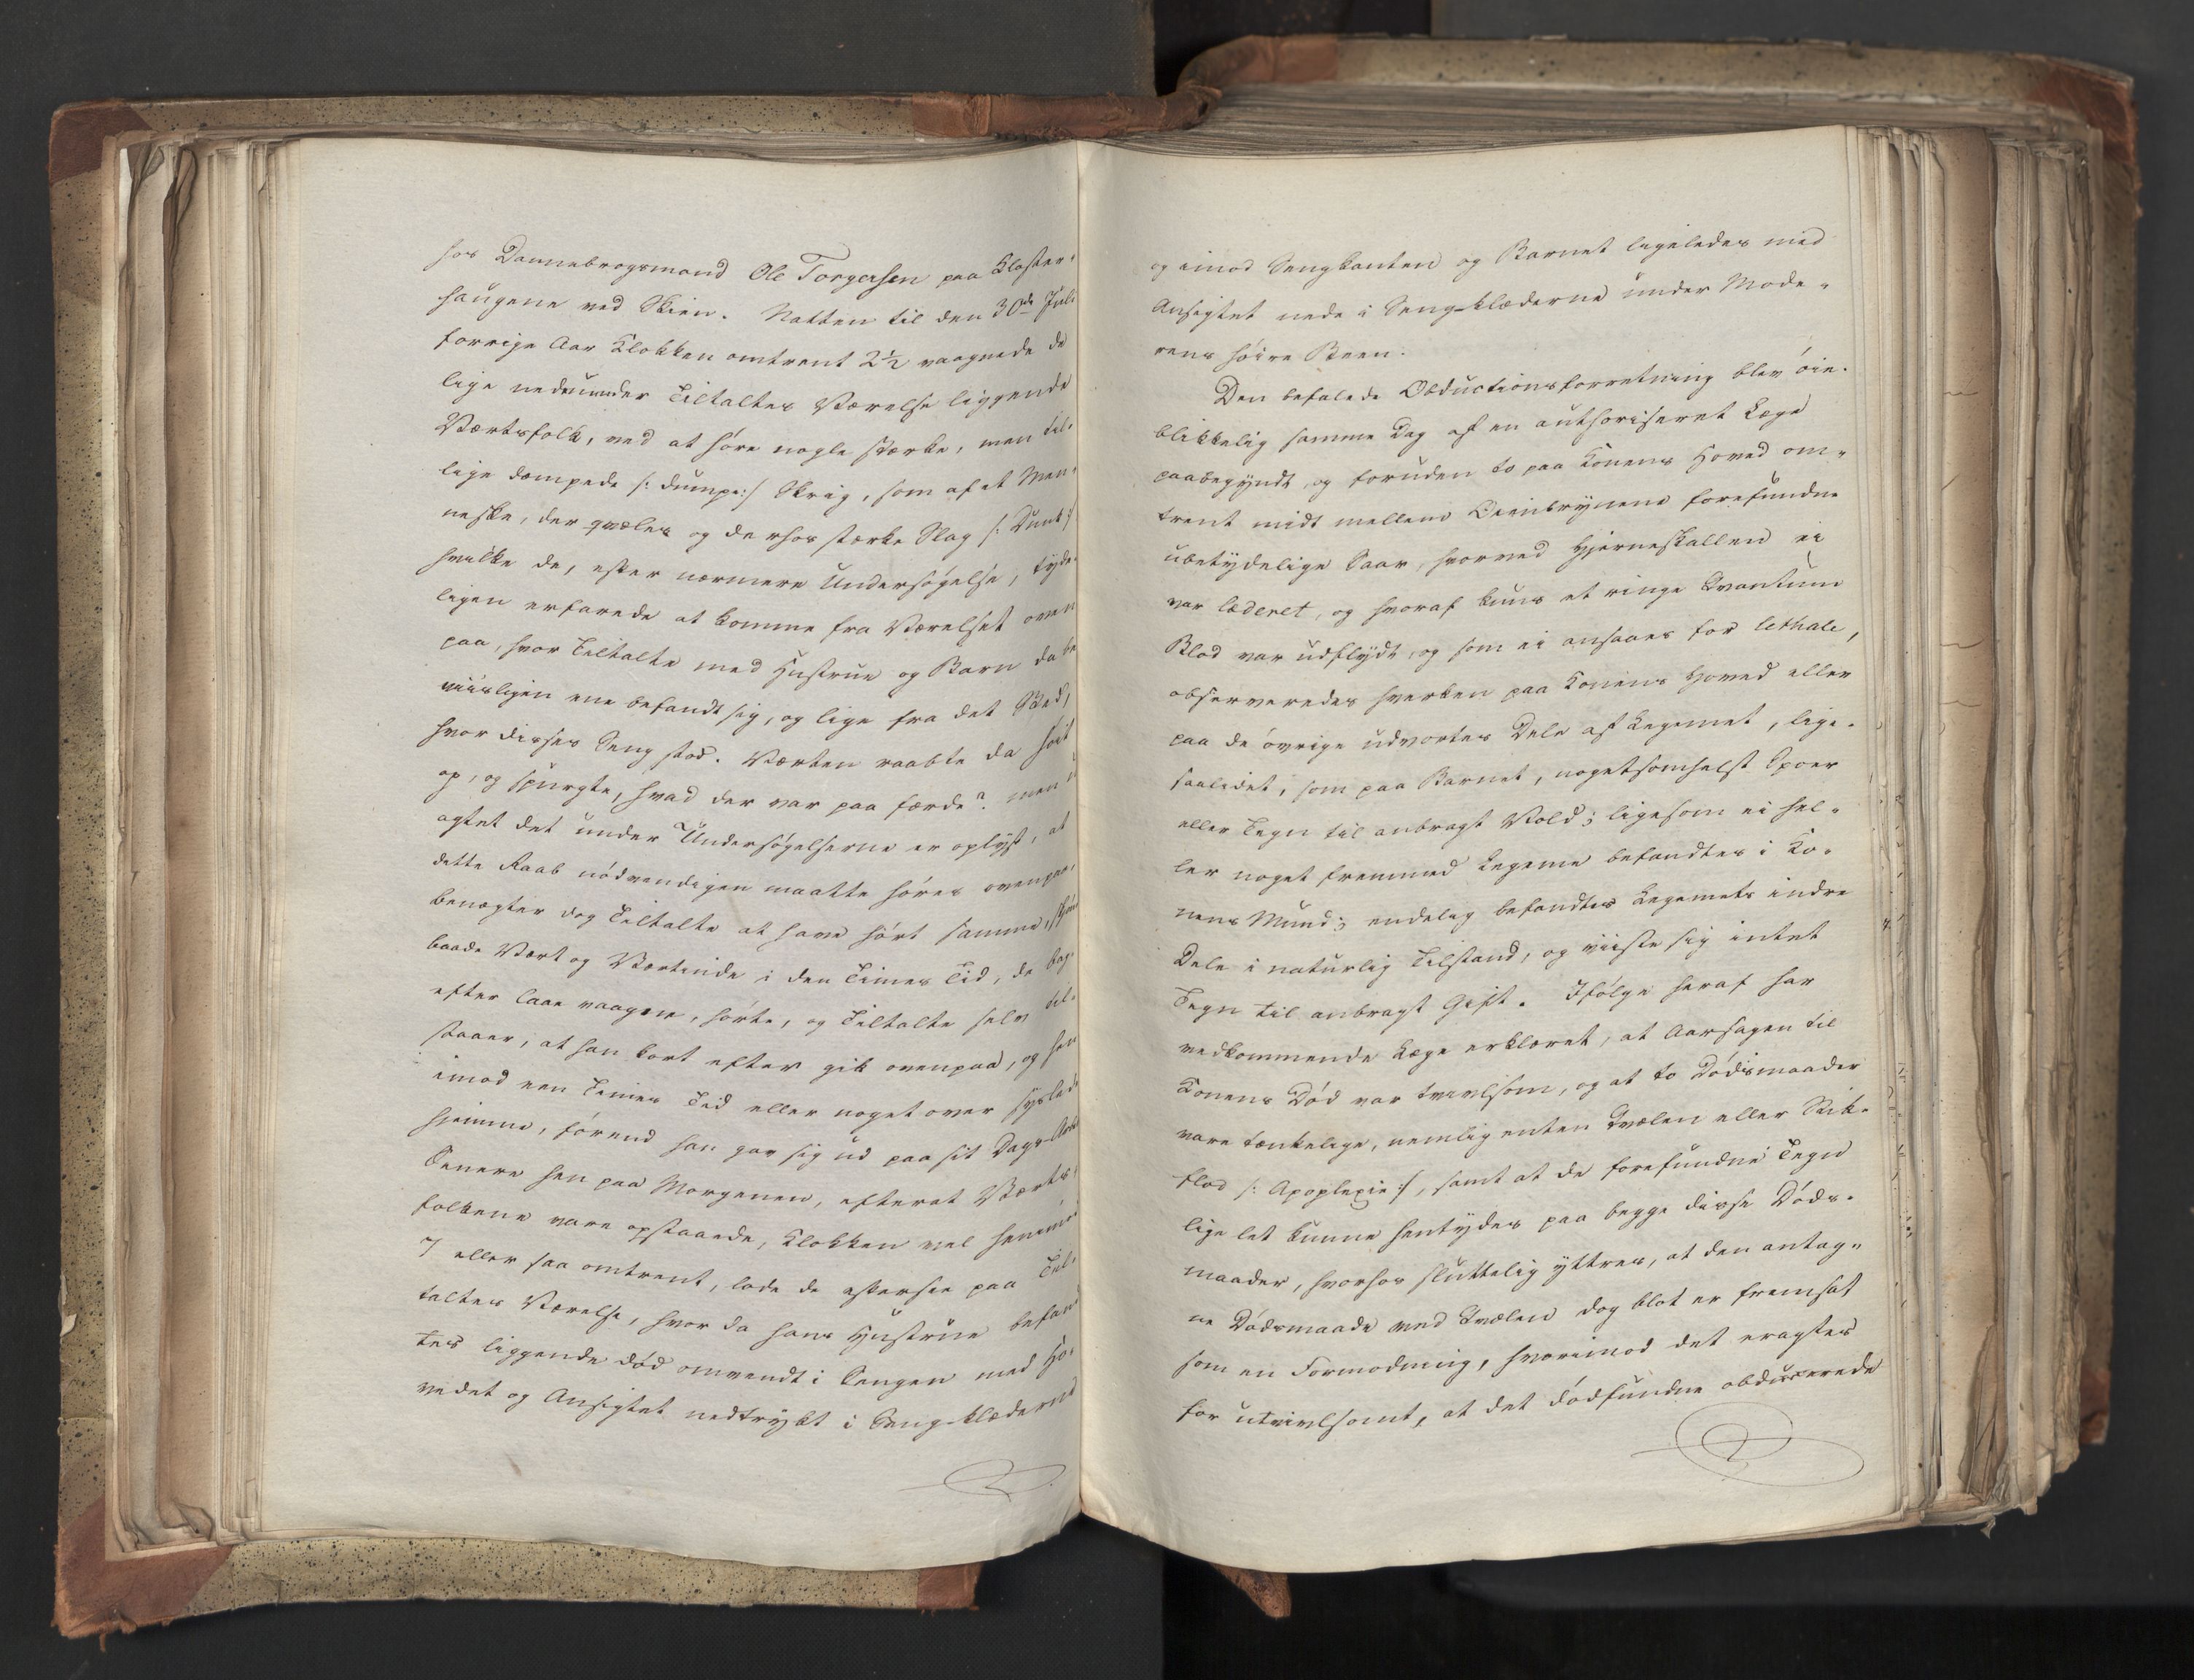 hos Dannebrogsmand Ole Torgersen paa Kloster-
haugene ved Skien. Natten til den 30de Juli
forrige Aar Klokken omtrent 2½ vaagnede de
lige nedenunder Tiltaltes Værelse liggende
Værtsfolk, ved at høre nogle stærke, men til-
lige dæmpede /: dumpe:/ Skrig, som af et Men-
neske, der qvæles og derhos stærke Slag /: Dunk:/
hvilke de, efter nærmere Undersøgelse, tyde-
ligen erfarede at komme fra Værelset oven
paa, hvor Tiltalte med Hustrue og Barn da be
viisligen ene befandt sig, og lige fra det Sted,
hvor disses Seng stod. Værten raabte da høit
op, og spurgte, hvad der var paa færde? men
agtet det under Undersøgelserne er oplyst, at
dette Raab nødvendigen maatte høres ovenpaa,
benægter dog Tiltalte at have hørt samme,
baade Vært og Værtinde i den Times Tid, de bag-
efter laae vaagne, hørte, og Tiltalte selv til-
staaer, at han kort efter gik ovenpaa, og hen
imod een Times Tid eller noget over syslede
hjemme, førend han gav sig ud paa sit Dags-Arb
Senere hen paa Morgenen, efterat Værts-
folkene vare opstaaede, Klokken vel henimod
7 eller saa omtrent, lode de eftersee paa Til-
taltes Værelse, hvor da hans Hustrue befand
tes liggende død omvendt i Sengen med Ho-
vedet og Ansigtet nedtrykt i Seng-klæderne
og imod Sengkanten og Barnet ligeledes med
Ansigtet nede i Seng-klæderne under Mode-
rens høire Been.
Den befalede Obductionsforretning blev øie-
blikkelig samme Dag af en authoriseret Læge
paabegyndt, og foruden to paa Konens Hoved om-
trent midt mellem Øienbrynene forefundne
ubetydelige Saar, hvorved Hjerneskallen ei
var læderet, og hvoraf kuns et ringe Qvantum
Blod var udflydt, og som ei ansaaes for lethale,
observeredes hverken paa Konens Hoved eller
paa de øvrige udvortes Dele af Legemet, lige-
saalidet, som paa Barnet, nogetsomhelst Spoer
eller Tegn til anbragt Vold; ligesom ei hel-
ler noget fremmed Legeme befandtes i Ko-
nens Mund; endelig befandtes Legemets indre
Dele i naturlig Tilstand, og viiste sig intet
Tegn til anbragt Gift. Ifølge heraf har
vedkommende Læge erklæret, at Aarsagen til
Konens Død var tvivlsom, og at to Dødsmaader
vare tænkelige, nemlig enten Qvælen eller Stik-
flod /: Apoplexie :/, samt at de forefundne Tegn
lige let kunne hentydes paa begge disse Døds-
maader, hvorhos sluttelig yttres, at den antag-
ne Dødsmaade ved Qvælen dog blot er fremsat
som en Formodning, hvorimod det eragtes
for utvivlsomt, at det dødfundne obducerede